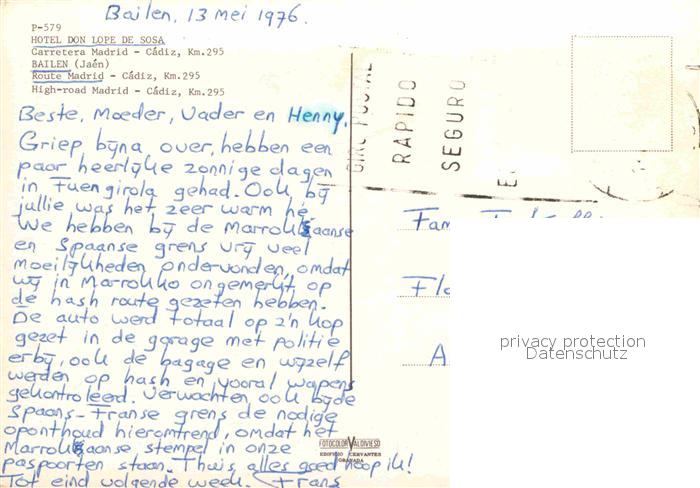 Bailen, 13 mei 1976.
P-579
HOTEL DON LOPE DE SOSA
Carretera Madrid - Cádiz, Km.295
BAILEN (Jaén)
Route Madrid - Cádiz, Km.295
High-road Madrid - Cádiz, Km.295
Beste, Moeder, Vader en Henny,
Griep bijna over, hebben een
paar heerlijke zonnige dagen
in Fuengirola gehad. Ook bij
jullie was het zeer warm hé.
We hebben bij de Marrokaanse
en Spaanse grens vrij veel
moeilijkheden ondervonden, omdat
wij in Marrokko ongemerkt op
de hash route gezeten hebben.
De auto werd totaal op z'n kop
gezet in de garage met politie
erbij, ook de bagage en wijzelf
werden op hash en vooral wapens
gekontroleerd. Verwachten ook bijde
Spaans-Franse grens de nodige
oponthoud hieromtrend, omdat het
Marrokaanse stempel in onze
paspoorten staan. Thuis alles goed hoop ik!
Tot eind volgende week. Frans
POSTAL
RAPIDO
SEGURO
Fam
Flo
A
privacy protection
Datenschutz
FOTOCOLOR VALDIVIESO
EDIFICIO CERVANTES
GRANADA